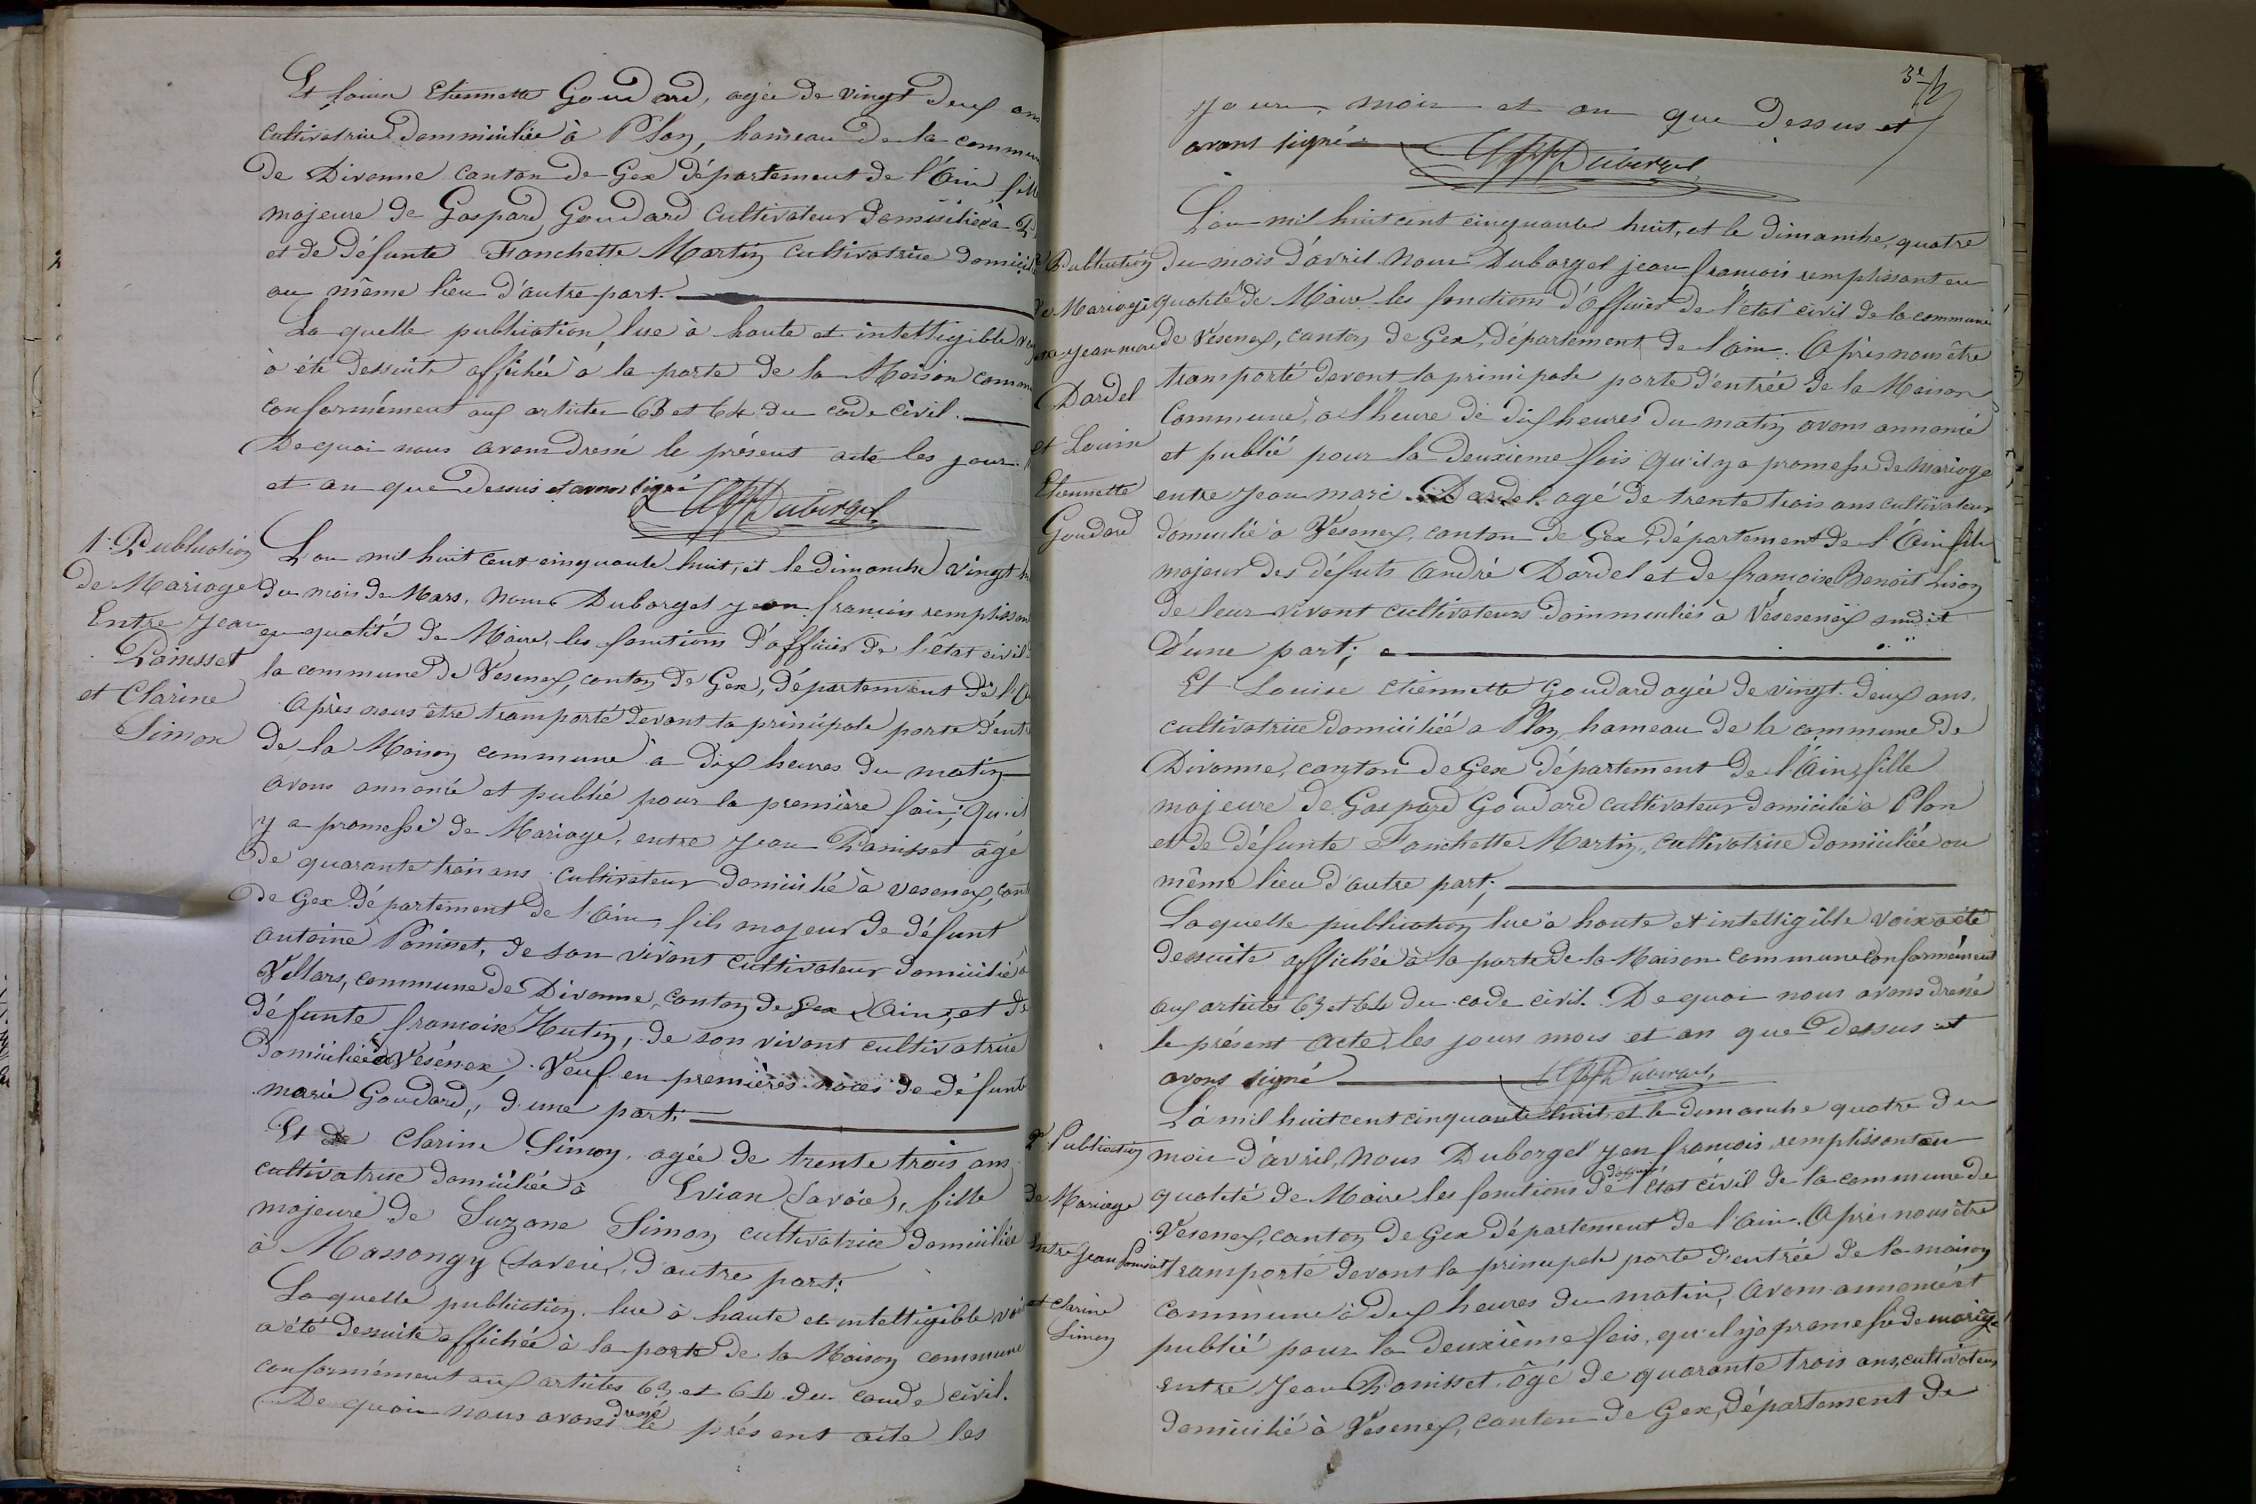 Et Louise Etiennette Goudard, agée de vingt deux ans
cultivatrice domiciliée à Plon, hameau de la commune
de Divonne canton de Gex département de l'Ain, fille
majeure de Gaspard Goudard cultivateur domicilié à
et de défunte Fanchette Martin cultivatrice domicili
au même lieu d'autre part.
La quelle publication, lue à haute et intelligible
à été dessuite affichée à la porte de la Maison comm
conformément aux articles 63 et 64 du code civil.
De quoi nous avons dressé le présent acte les jour
et an que dessus et avons signé
Duborgel
1e Publication
de Mariage
Entre Jean
Ponisset
et Clarine
Simon
L'an mil huit cent cinquante huit, et le dimanche vingt
du mois de Mars, nous Duborgel jean francois remplissan
en qualité de Maire, les fonctions d'officier de l'état civil
la commune de Vesenex, canton de Gex, département de l'
Après nous être transporté devant la principale porte d'ent
de la Maison commune à dix heures du matin
avons annoncé et publié pour la première fois, qu'il
y a promesse de Mariage, entre Jean Ponisset âgé
de quarante trois ans cultivateur domicilié à vesenex, cant
de Gex département de l'Ain, fils majeur de défunt
antoine Ponisset, de son vivant cultivateur domicilié à
Villars, commune de Divonne, canton de Gex (Ain), et de
défunte francoise Hutin, de son vivant cultivatrice
domiciliée à Vésénex, Veuf en premières noces de défunte
marie Goudard, d'une part.
Et Clarine Simon, agée de trente trois ans
cultivatrice domiciliée à Evian (Savoie), fille
majeure de Suzane Simon cultivatrice domiciliée
à Massongy (Savoie), d'autre part.
La quelle publication, lue à haute et intelligible voix
a été dessuite affichée à la porte de la Maison commune
conformément aux articles 63 et 64 du coude civil.
De quoi nous avons dressé le présent acte les
3e
jour, mois et an que dessus et
avons signé
Duborgel
2e Publication
de Mariage
entre jean marie
Dardel
et Louise
Etiennette
Goudard
L'an mil huit cent cinquante huit, et le dimanche, quatre
du mois d'avril nous Duborgel jean francois remplissant en
qualité de Maire les fonctions d'officier de l'état civil de la commune
de Vesenex, canton de Gex, département de l'ain. Après nous être
transporté devant la principale porte d'entrée de la Maison
Commune, à l'heure de dix heures du matin avons annoncé
et publié pour la deuxième fois qu'il y a promesse de mariage
entre Jean marie Dardel agé de trente trois ans cultivateur
domicilié à Vesenex, canton de Gex, département de l'Ain fils
majeur des défuts André Dardel et de francoise Benoit Lison
de leur vivant cultivateurs dommiciliés à Vésesenex sudit
D'une part;
Et Louise etiennette Goudard agée de vingt deux ans.
cultivatrice domiciliée a Plon hameau de la commune de
Divonne, canton de Gex département de l'Ain, fille
majeure de Gaspard Goudard cultivateur domicilié à Plon
et de défunte Fanchette Martin, cultivatrice domiciliée au
même lieu d'autre part;
Laquelle publication lue à haute et intelligible voix a été
dessuite affichée à la porte de la Maison commune conformément
aux articles 63 et 64 du code civil. De quoi nous avons dressé
le présent acte, les jours mois et an que Dessus et
avons signé
Duborgel
2e Publication
de Mariage
entre Jean Ponisset
et Clarine
Simon
La mil huit cent cinquante huit et le dimanche quatre du
mois d'avril, nous Duborgel jean francois remplissant en
qualité de Maire les fonctions d'officier de l'état civil de la commune de
Vesenex, canton de Gex département de l'ain. Après nous être
transporté devant la principale porte d'entrée de la maison
commune à dix heures du matin, avons annoncé et
publié pour la deuxième fois, qu'il y a promesse de mariage
entre Jean Ponisset âgé de quarante trois ans, cultivateur
domicilié à Vesenex, canton de Gex, département de